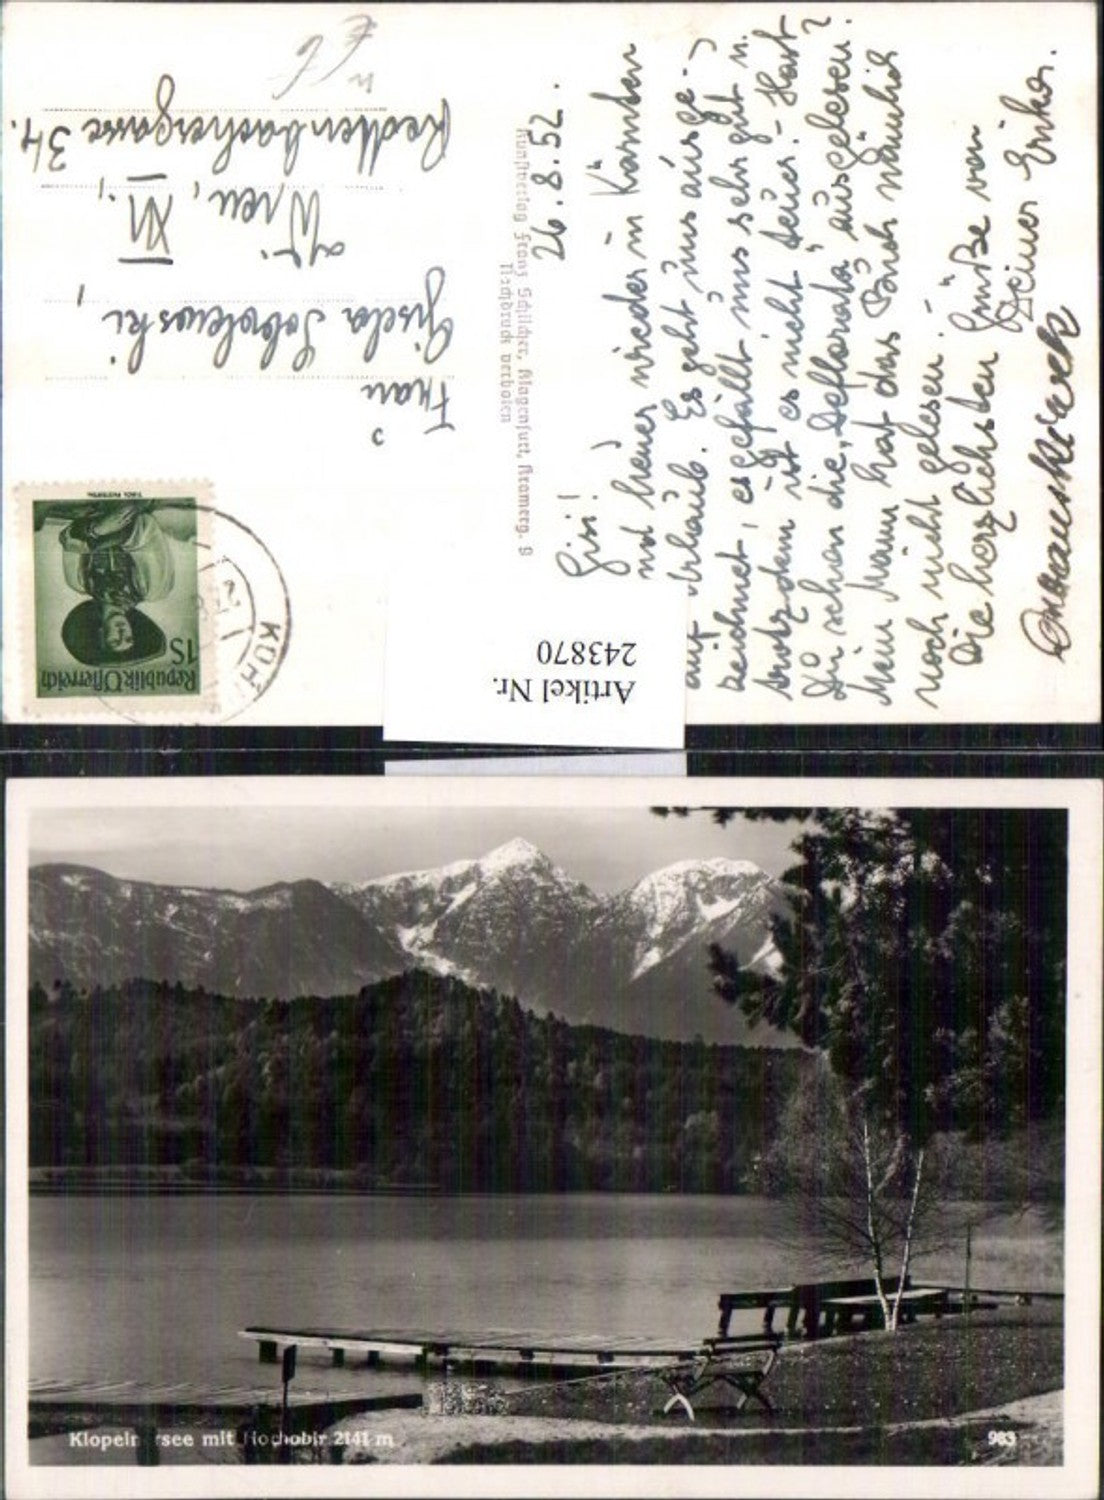 26.8.52.
Gisi!
sind heuer wieder in Kärnten
auf Urlaub. Es geht uns ausge-
zeichnet, es gefällt uns sehr gut u.
trotzdem ist es nicht teuer. - Hast
Du schon die „Deflorata" ausgelesen?
Mein Mann hat das Buch nämlich
noch nicht gelesen. -
Die herzlichsten Grüße von
Deiner Erika.
Frau
Gisela Sobolewski,
Wien, XII.,
Redtenbachergasse 34.
Kunstverlag Franz Schilcher, Klagenfurt, Kramerg. 8
Nachdruck verboten
Republik Österreich
1S
Artikel Nr.
243870
Klopein rsee mit Hochobir 2141 m
983